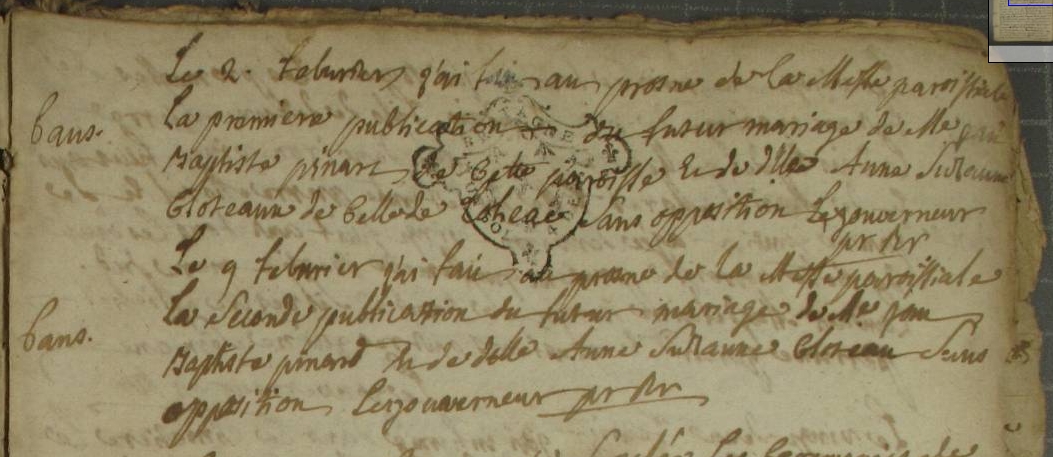 Le 2. febvrier j'ai fait au prosne de la Messe paroissiale
bans.
La premiere publication du futur mariage de Me jan
Baptiste pinard de Cette paroisse & de dlle Anne Suzanne
Cloteaune de Celle de sans opposition Legouverneur
pr Rr
Le 9 febvrier j'ai fait au prosne de la Messe paroissiale
bans.
La Seconde publication du futur mariage de Me jan
Baptiste pinard & de dlle Anne Suzanne Cloteau Sans
opposition Legouverneur pr Rr
les ceremonies de